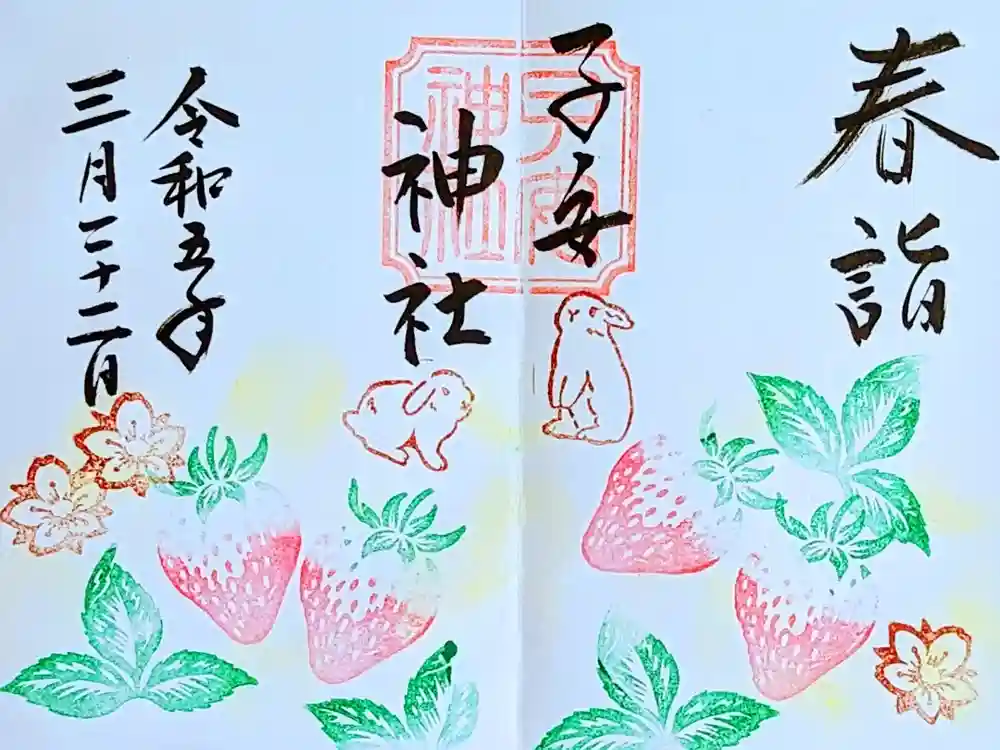 春詣
子安
神社
子安
神社
令和五年
三月二十二日